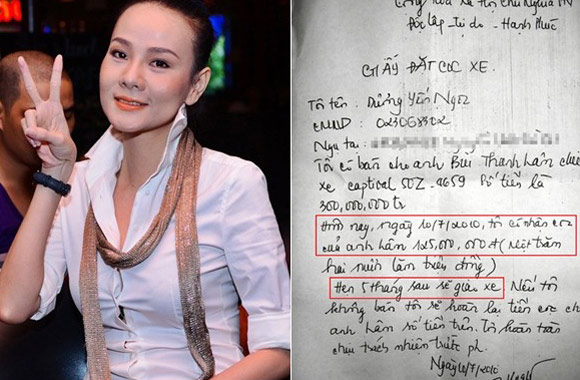 Cộng hòa xã hội chủ nghĩa VN
Độc lập - Tự do - Hạnh Phúc
GIẤY ĐẶT CỌC XE
Tôi tên: Dương Yến Ngọc
CMND: 023068302
Ngụ tại:
Tôi có bán cho anh Bùi Thanh Hân chiếc
xe captival 50Z-4659 số tiền là
300,000,000 tr
Hôm nay, ngày 10/7/2010, tôi có nhận cọc
của anh Hân 125,000,000đ (một trăm
hai mươi lăm triệu đồng)
Hẹn 5 tháng sau sẽ giao xe Nếu tôi
không bán tôi sẽ hoàn lại tiền cọc cho
anh Hân số tiền trên. Tôi hoàn toàn
chịu trách nhiệm trước pl.
Ngày 10/7/2010